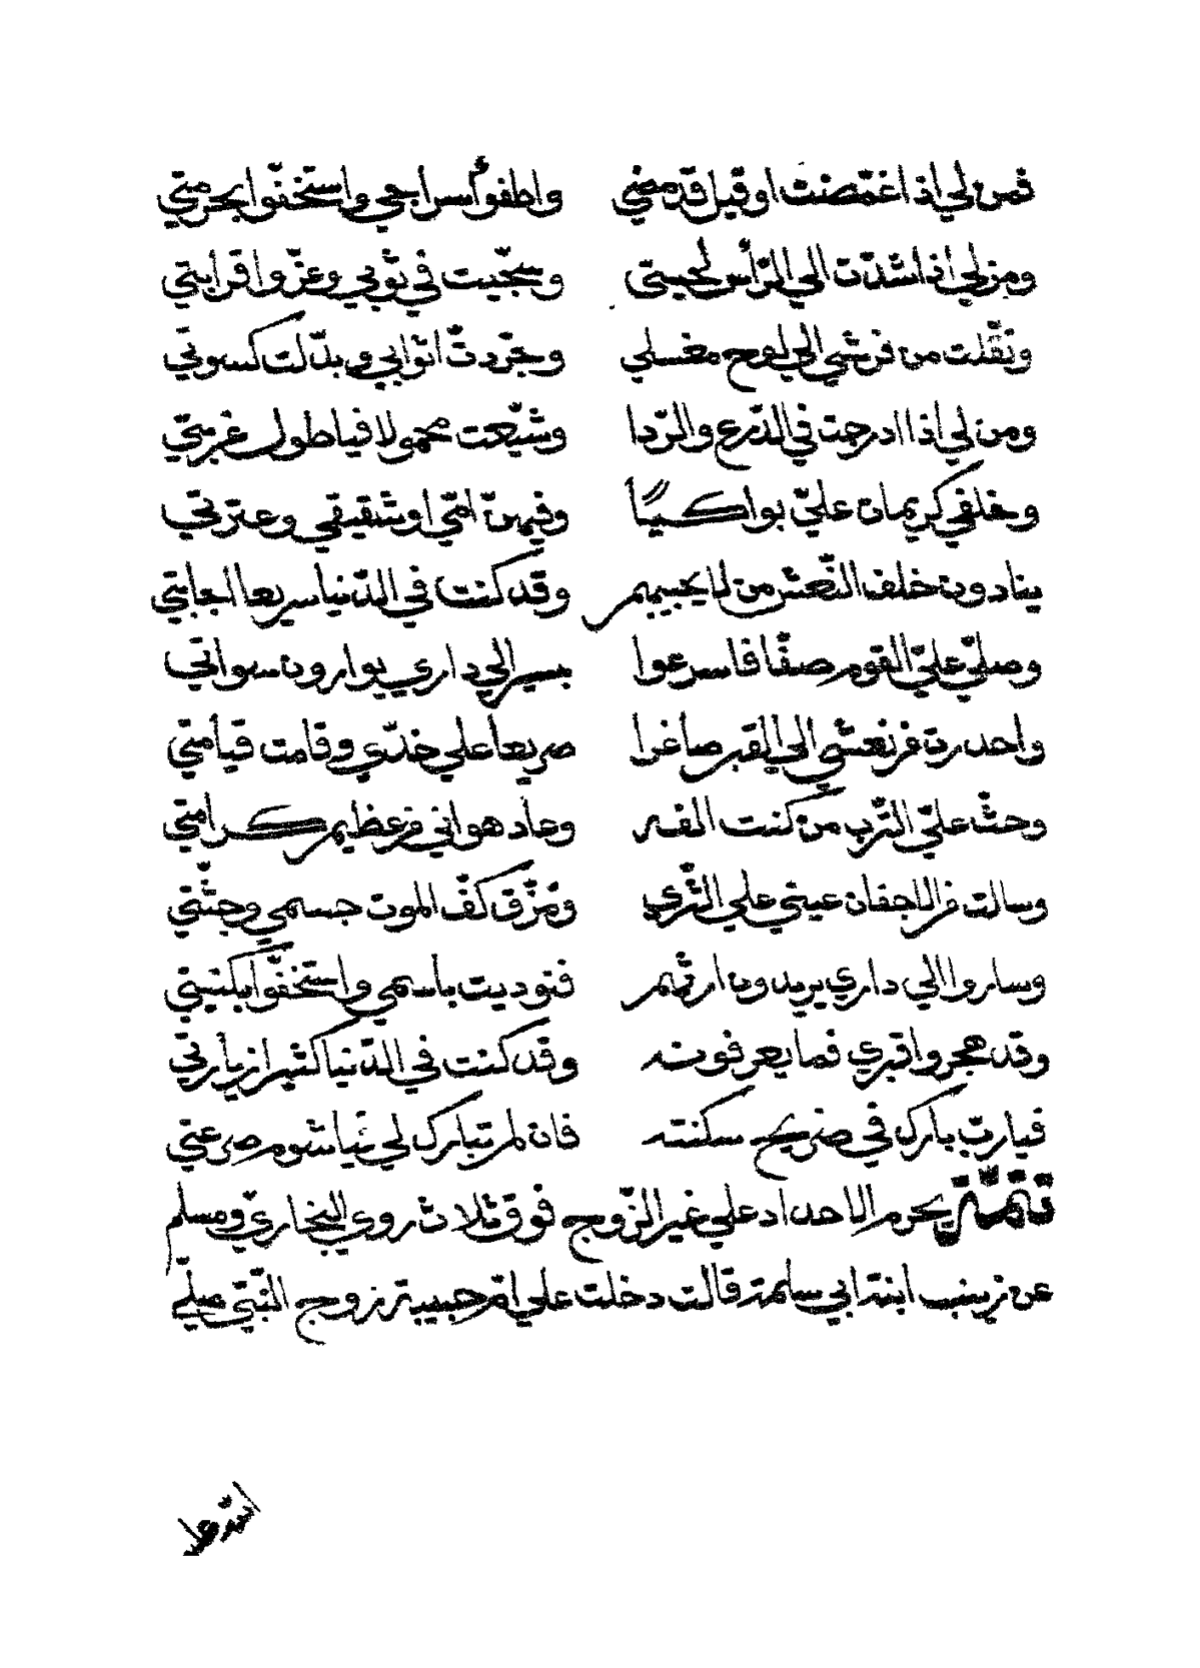 فمن لي اذا غمّضت او قيل قد مضي واطفوا سراجي واستخفّوا بحرمتي
ومن لي اذا شدّت الي الرّأس لحيتي وسجّيت في ثوبي وعزّوا قرابتي
ونقّلت من فرشي الي لوح مغسلي وجرّدت اثوابي وبدّلت كسوتي
ومن لي اذا ادرجت في الدّرع والرّدا وشيّعت محمولا فيا طول غربتي
وخلفي كريمان عليّ بواكيًا وفيهنّ امّي او شقيقي وعترتي
ينادون خلف النّعش من لا يجيبهم وقد كنت في الدّنيا سريعا اجابتي
وصلّي عليّ القوم صفّا فاسرعوا بسير الي داري يوارون سواتي
واحدرت من نعشي الي القبر صاغرا صريعا علي خدّي وقامت قيامتي
وحثّ عليّ التّرب من كنت الفه وعاد هواني من عظيم كرامتي
وسالت من الاجفان عيني علي الثّري ومزّق كفّ الموت جسمي وجثّتي
وساروا الي داري يريدون ارثهم فنوديت باسمي واستخفّوا بكنيتي
وقد هجروا قبري فما يعرفونه وقد كنت في الدّنيا كثيرا زيارتي
فيا ربّ بارك في ضريح سكنته فان لم تبارك لي فيا شوم صرعتي
تتمّة يحرم الاحداد علي غير الزّوج فوق ثلاث روي البخاري ومسلم
عن زينب ابنة ابي سلمة قالت دخلت علي امّ حبيبة زوج النّبيّ صلّي